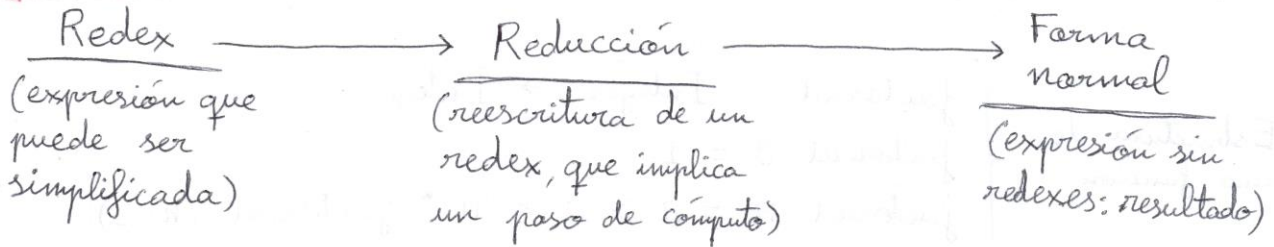 Redex → Reducción → Forma
normal
(expresión que
puede ser
simplificada)
(reescritura de un
redex, que implica
un paso de cómputo)
(expresión sin
redexes: resultado)